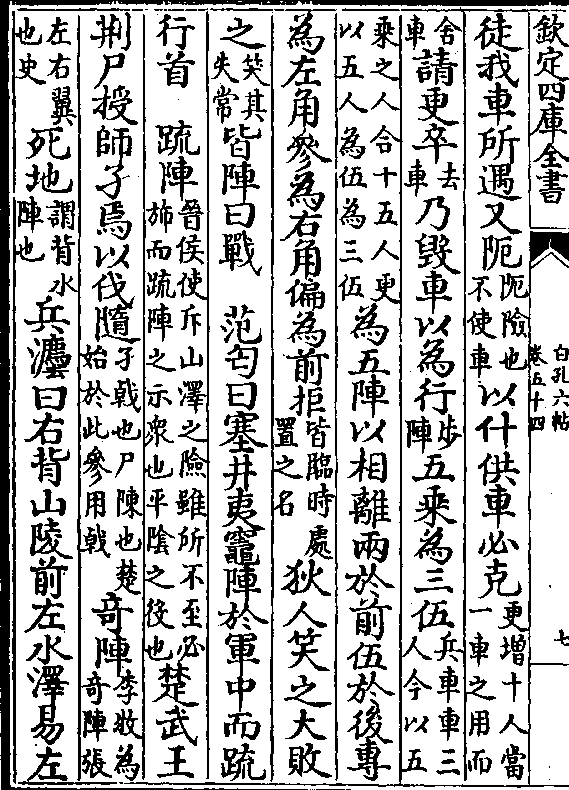 欽定四庫全書 白孔六帖 卷五十四 七
徒我車所遇又阨阨險也不使車以什供車必克更增十人當一車之用而
舍車請更卒去車乃毁車以為行步陣五乘為三伍兵車車三人今以五
乘之人合十五人更以五人為伍為三伍為五陣以相離兩於前伍於後專
為左角參為右角偏為前拒皆臨時處置之名狄人笑之大敗
之笑其失常皆陣曰戰 范匄曰塞井夷竈陣於軍中而疏
行首 疏陣晉侯使斥山澤之險雖所不至必斾而疏陣之示衆也平陰之後也楚武王
荆尸授師孑焉以伐隨孑戟也尸陳也楚始於此參用戟奇陣李牧為奇陣張
左右翼也史死地謂背水陣也兵灋曰右背山陵前左水澤易左